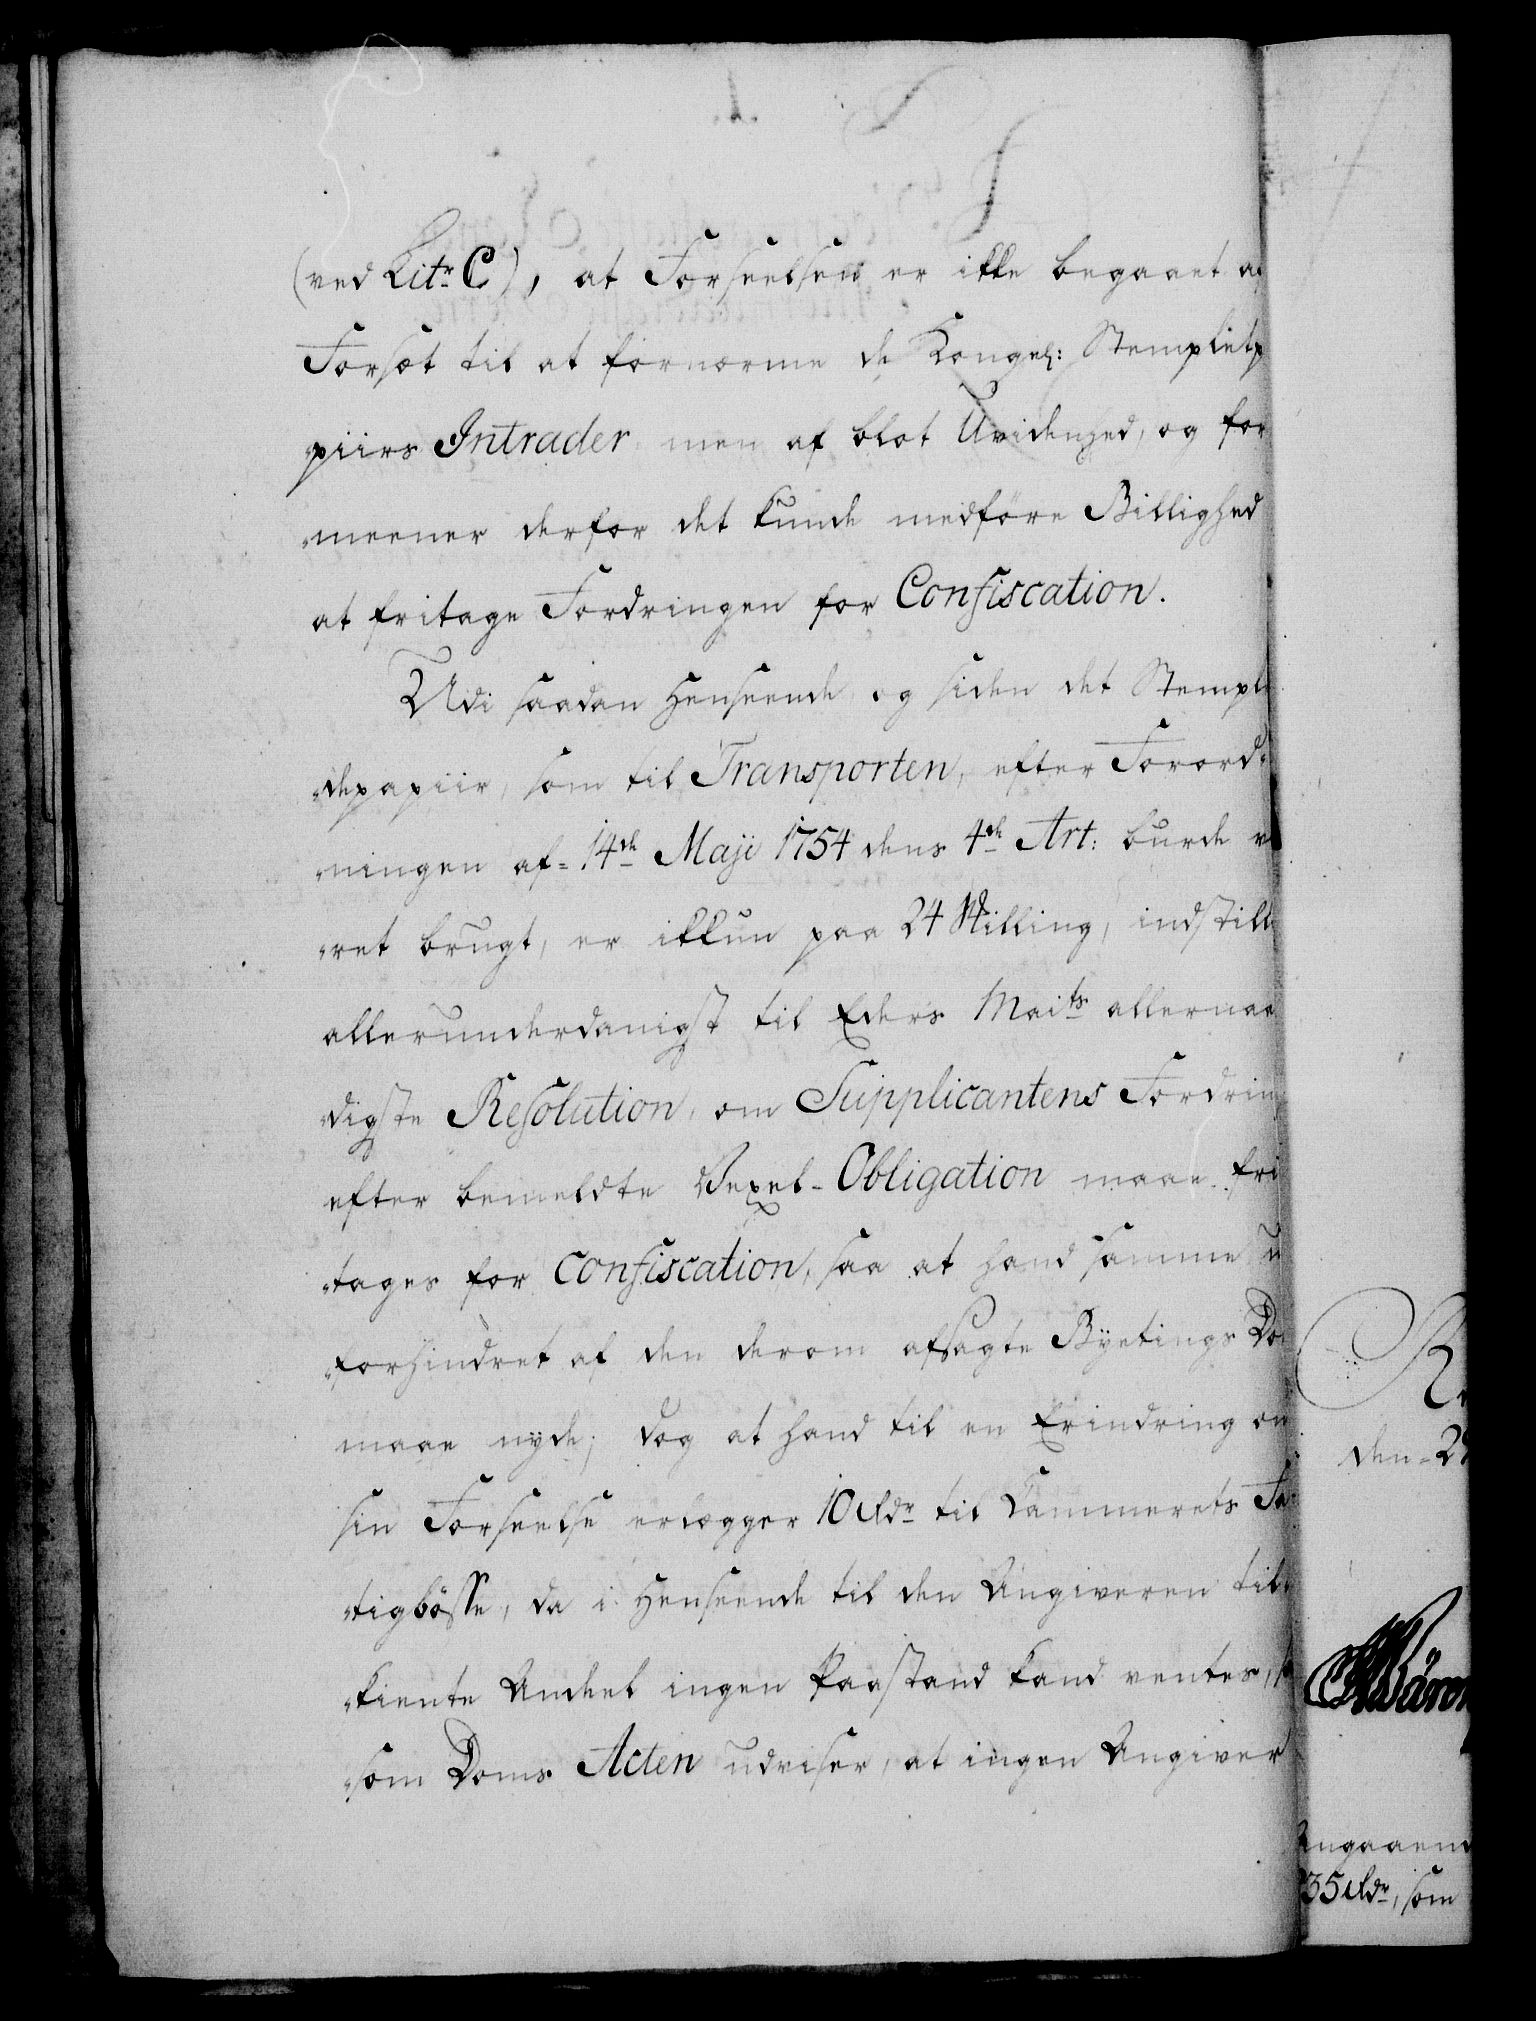 (ved Litr C), at Forseelsen er ikke begaaet af
Forsæt til at fornærme de Kongel: Stempletp
piirs Intrader men af blot Uvidenhed, og for
meener derfor det kunde medføre Billighed
at fritage Fordringen for Confiscation.
Udi saadan Henseende og siden det Stempl
depapiir, som til Transporten, efter Forord-
ningen af 14de Maji 1754 dens 4de Art: burde v
ret brugt, er ikkun paa 24 Skilling, indstill
allerunderdanigst til Eders Maits allernaa
digste Resolution, om Supplicantens Fordrin
efter bemeldte Vexel-Obligation maae fri
tages for Confiscation, saa at hand samme u
forhindret af den derom afsagte Byetings Do
maae nyde; dog at hand til en Erindring om
sin Forseelse erlægger 10 Rdr til Kammerets Fa
tigbøsse, da i Henseende til den Angiveren til-
kiente Andeel ingen Paastand kand ventes, s
som Doms Acten udviser, at ingen Angiver
R
den 2
Wären
Angaaend
35 Rdr, som